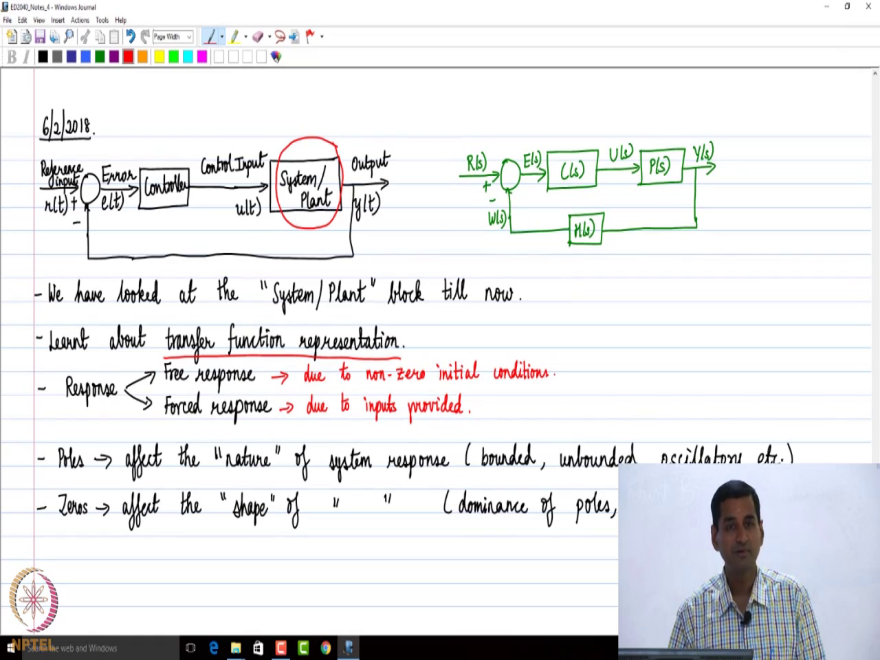 ED2040_Notes_4 - Windows Journal
File Edit View Insert Actions Tools Help
Page Width
6/2/2018.
Reference input r(t) + - Error e(t) Controller Control Input u(t) System/Plant Output y(t)
R(s) + - E(s) C(s) U(s) P(s) Y(s)
W(s) H(s)
- We have looked at the "System/Plant" block till now.
- Learnt about transfer function representation.
- Response
Free response → due to non-zero initial conditions.
Forced response → due to inputs provided.
- Poles → affect the "nature" of system response (bounded, unbounded, oscillatory etc.)
- Zeros → affect the "shape" of " " (dominance of poles,
NPTEL
the web and Windows